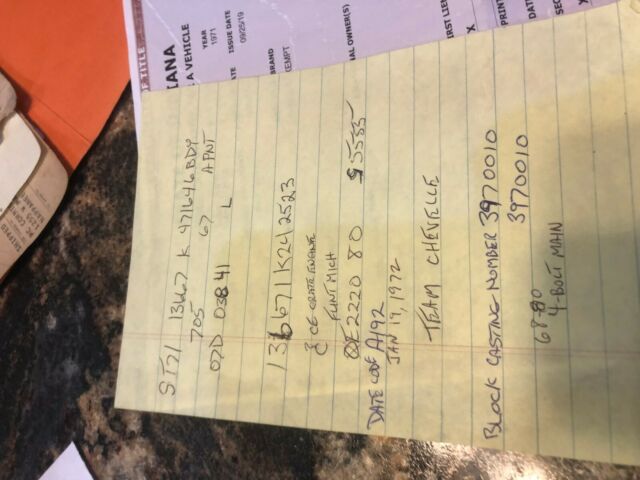 OF TITLE
IANA
A VEHICLE
YEAR
1971
ISSUE DATE
09/25/19
BRAND
EXEMPT
AL OWNER(S)
FIRST LIEN
X
ST71 13667 K 971646 BDY
705 67 A PNT
07D 03841 L
136671K242523
CE CRATE ENGINE
FLINT MICH
2220 80 $5535
DATE CODE A192
JAN 19, 1972
TEAM CHEVELLE
BLOCK CASTING NUMBER 3970010
3970010
68-80
4-BOLT MAIN